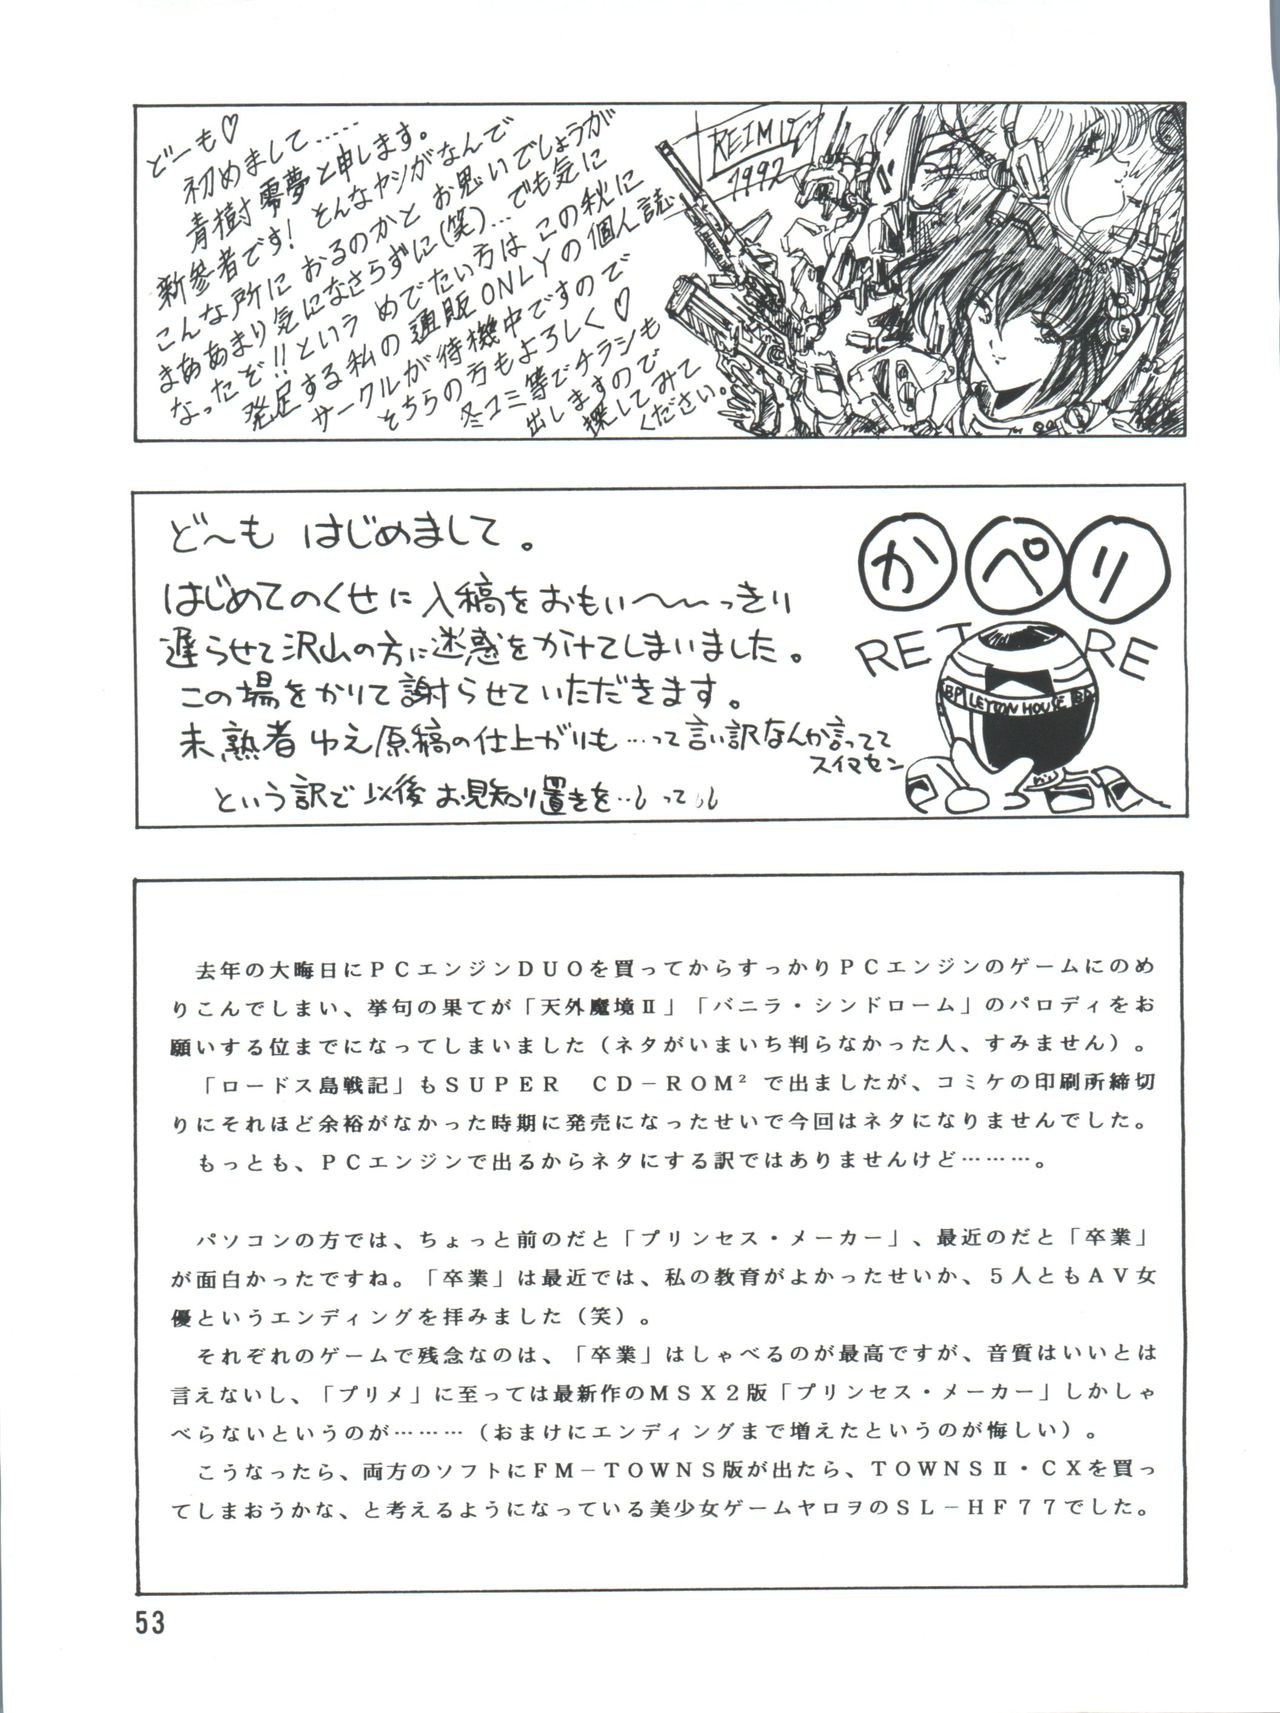 どーも♡
初めまして……
青樹 零夢と申します。
新参者です! そんなヤシがなんで
こんな所におるのかと お思いでしょうが
まああまり気になさらずに(笑)…でも気に
なったぞ!!という めでたい方は この秋に
発足する私の通販ONLYの個人誌
サークルが待機中ですので
そちらの方もよろしく♡
冬コミ等でチラシも
出しますので
探してみて
ください。
REIMU
1992
ど〜も はじめまして。
はじめてのくせに入稿をおもい〜〜っきり
遅らせて沢山の方に迷惑をかけてしまいました。
この場をかりて謝らせていただきます。
未熟者ゆえ原稿の仕上がりも…って言い訳なんか言ってて
スイマセン
という訳で以後お見知り置きを…
かペリ
RETIRE
BP LEYTON HOUSE BP
去年の大晦日にPCエンジンDUOを買ってからすっかりPCエンジンのゲームにのめ
りこんでしまい、挙句の果てが「天外魔境Ⅱ」「バニラ・シンドローム」のパロディをお
願いする位までになってしまいました(ネタがいまいち判らなかった人、すみません)。
「ロードス島戦記」もSUPER CD-ROM²で出ましたが、コミケの印刷所締切
りにそれほど余裕がなかった時期に発売になったせいで今回はネタになりませんでした。
もっとも、PCエンジンで出るからネタにする訳ではありませんけど………。
パソコンの方では、ちょっと前のだと「プリンセス・メーカー」、最近のだと「卒業」
が面白かったですね。「卒業」は最近では、私の教育がよかったせいか、5人ともAV女
優というエンディングを拝みました(笑)。
それぞれのゲームで残念なのは、「卒業」はしゃべるのが最高ですが、音質はいいとは
言えないし、「プリメ」に至っては最新作のMSX2版「プリンセス・メーカー」しかしゃ
べらないというのが………(おまけにエンディングまで増えたというのが悔しい)。
こうなったら、両方のソフトにFM-TOWNS版が出たら、TOWNSⅡ・CXを買っ
てしまおうかな、と考えるようになっている美少女ゲームヤロヲのSL-HF77でした。
53